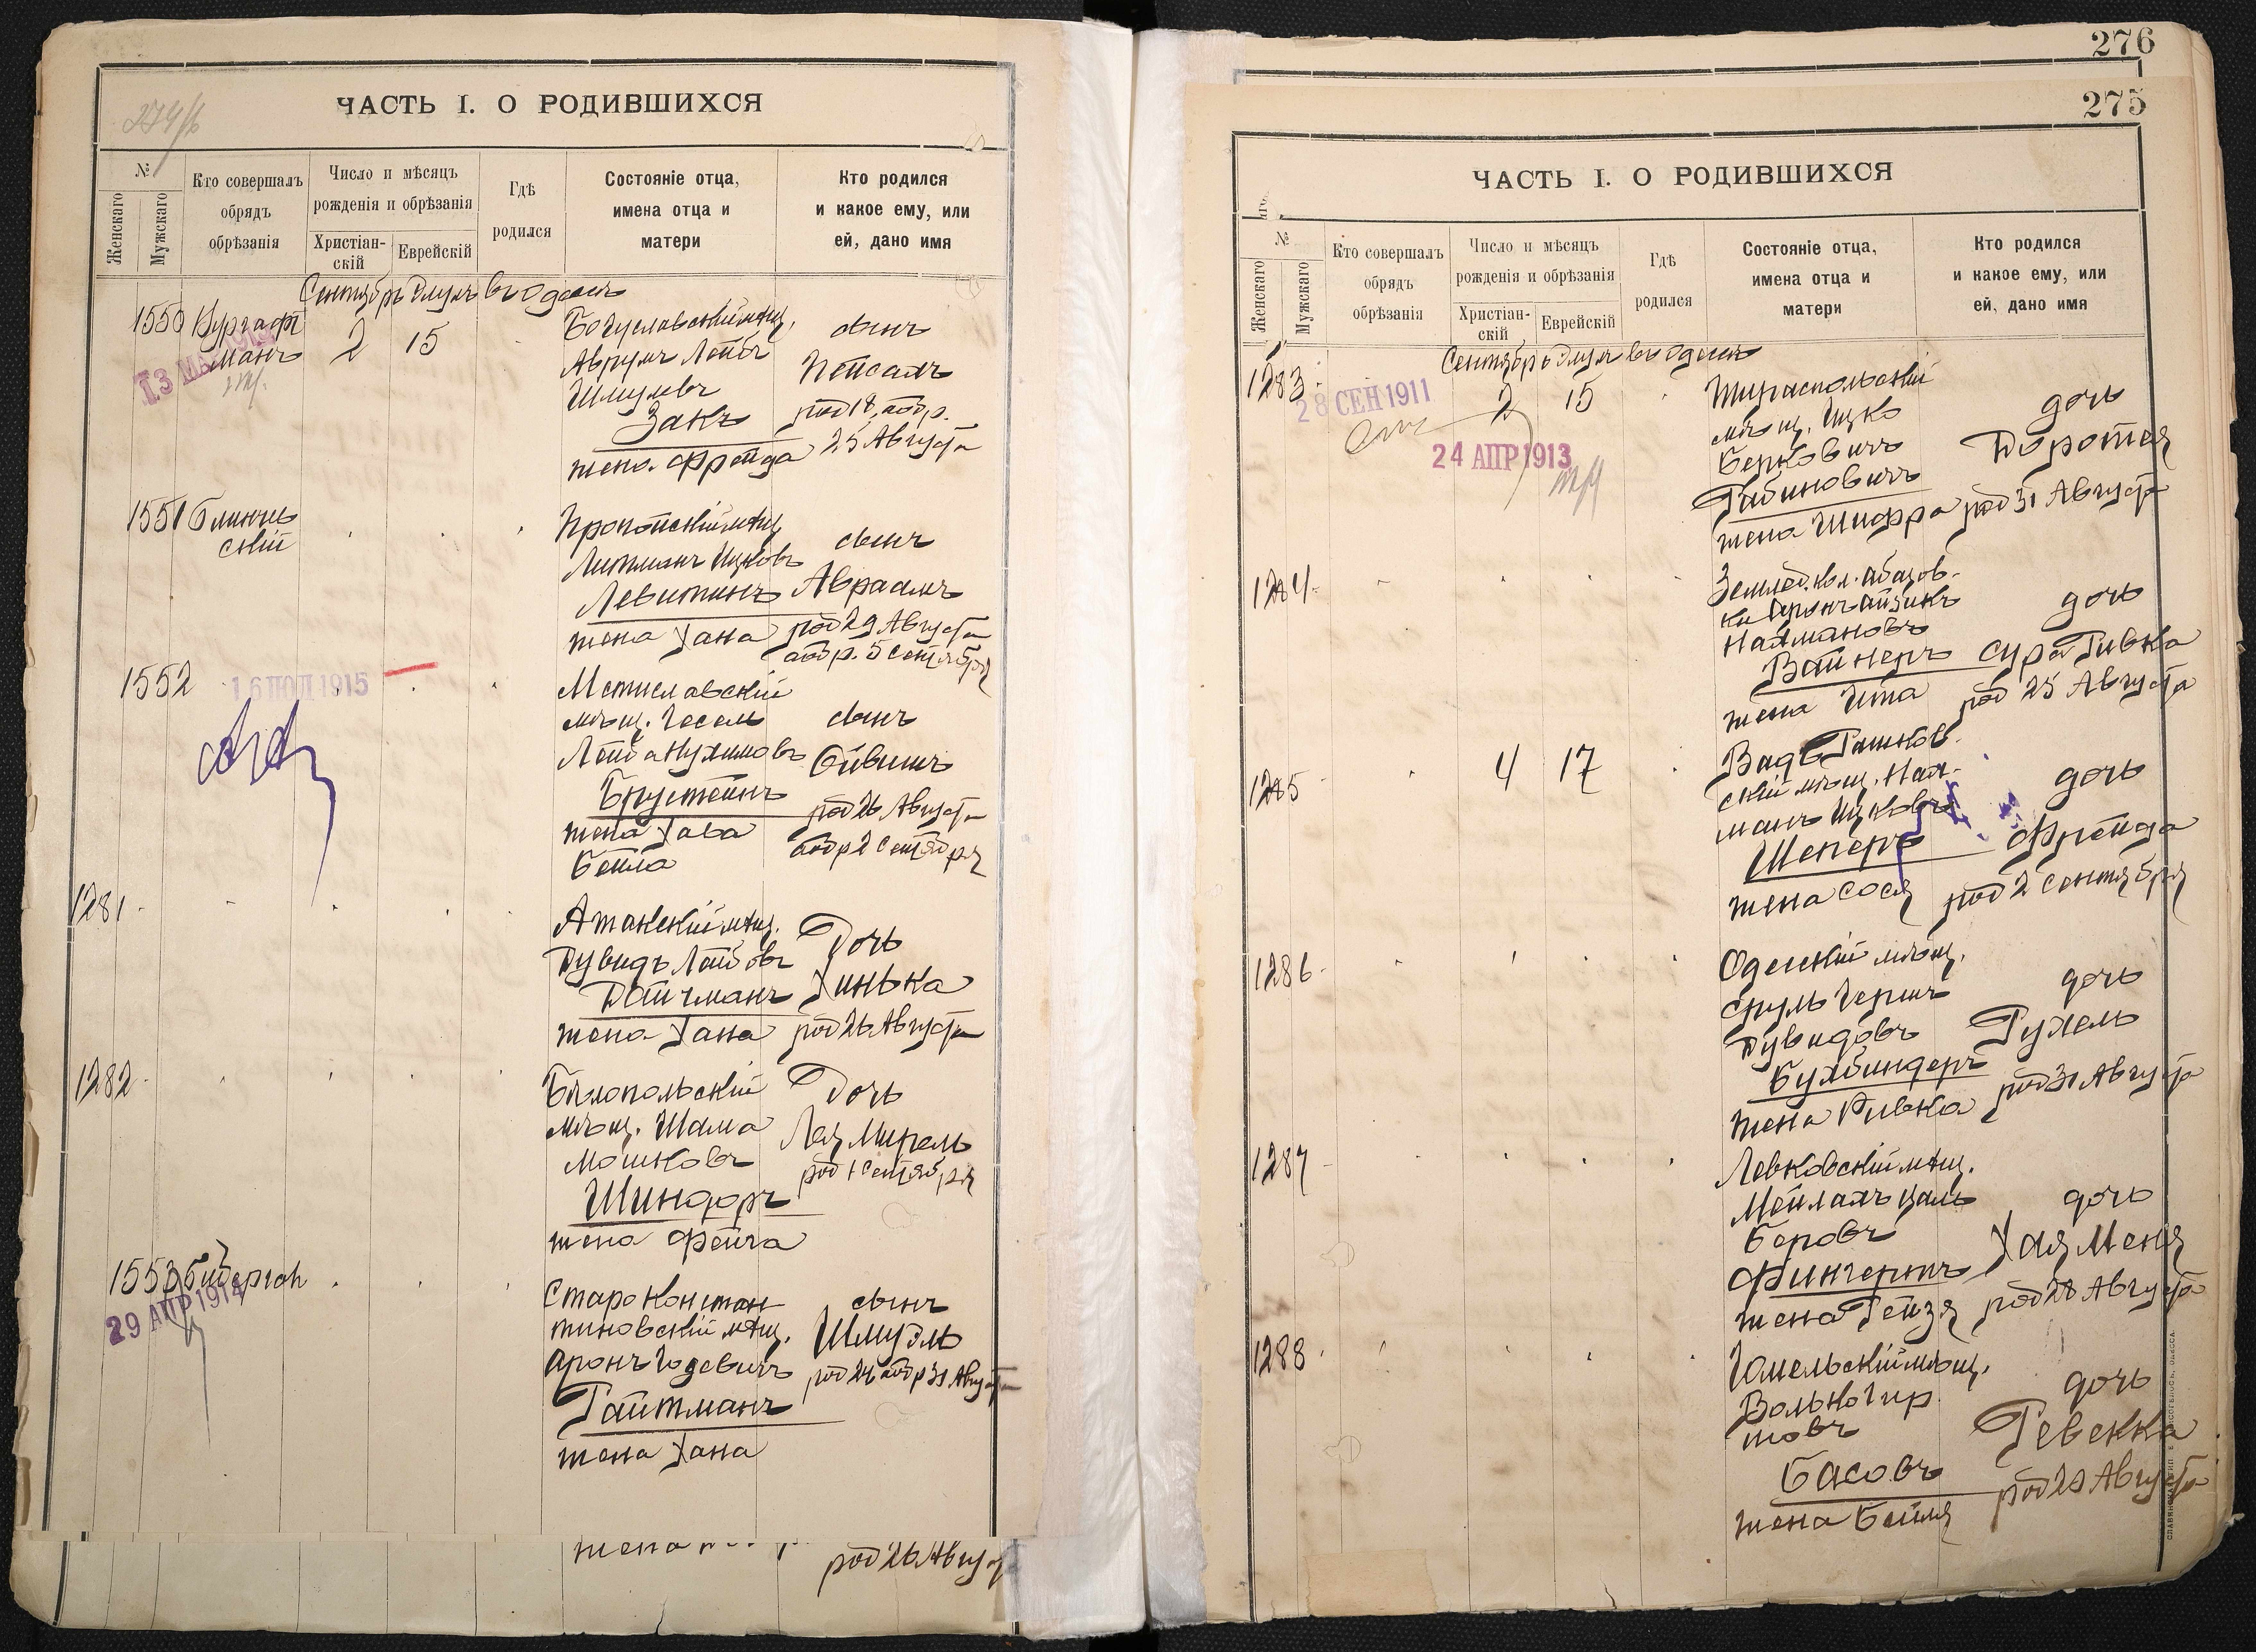 ЧАСТЬ I. О РОДИВШИХСЯ
№
Женскаго
Мужскаго
Кто совершалъ
обрядъ
обрѣзанія
Число и мѣсяцъ
рожденія и обрѣзанія
Христіан-
скій
Еврейскій
Гдѣ
родился
Состояніе отца,
имена отца и
матери
Кто родился
и какое ему, или
ей, дано имя
Сентябрь Элулъ въ Одессѣ
1550
2
15
Богуславскій мѣщ.
Аврумъ Лейбъ
Шмулевъ
Закъ
жена Фрейда
сынъ
Пейсахъ
род 18, обр.
25 Августа
1551
Блинчев
скій
Пропойскій мѣщ
Литманъ Ицковъ
Левитинъ
жена Хана
сынъ
Авраамъ
род 29 Августа
обр. 5 Сентября
1552
16 1915
Мстиславскій
мѣщ. Іосель
Лейба Нухимовъ
Брустейнъ
жена Хава
Бейла
сынъ
Ойвишъ
род 26 Августа
обр 2 Сентября
1281
Атакскій мѣщ.
Дувидъ Лейбовъ
Дайчманъ
жена Хана
Дочь
Хинька
род 26 Августа
1282
Бѣлопольскій
мѣщ. Шама
Мошковъ
Шиндоръ
жена Фейга
Дочь
Лея Мирель
род 1 Сентября
1553
29 АПР 1914
Староконстан
тиновскій мѣщ.
Аронъ
Гайтманъ
жена Хана
сынъ
Шмуэль
род 24 обр 31 Августа
жена
род 26 Августа
276
275
ЧАСТЬ I. О РОДИВШИХСЯ
№
Женскаго
Мужскаго
Кто совершалъ
обрядъ
обрѣзанія
Число и мѣсяцъ
рожденія и обрѣзанія
Христіан-
скій
Еврейскій
Гдѣ
родился
Состояніе отца,
имена отца и
матери
Кто родился
и какое ему, или
ей, дано имя
Сентябрь Элулъ въ Одессѣ
1283
28 СЕН 1911
24 АПР 1913
2
15
Тираспольскій
мѣщ. Ицко
Берковичъ
Рабиновичъ
жена Шифра
дочь
Доротея
род 31 Августа
1284
Землед. кол. Абазов-
ки Аронъ Айзикъ
Нахмановъ
Вайнеръ
жена Ита
дочь
Сура Ривка
род 25 Августа
1285
4
17
Вадъ Рашков
скій мѣщ. Нах-
манъ Ицковъ
Шеперъ
жена Сося
дочь
Фрейда
род 2 Сентября
1286
Одесскій мѣщ.
Сруль Гершъ
Дувидовъ
Бухбиндеръ
жена Ривка
дочь
Рухель
род 31 Августа
1287
Левковскій мѣщ.
Мейлахъ Цаль
Беровъ
Фингертъ
жена Рейзя
дочь
Хая Меня
род 28 Августа
1288
Гомельскій мѣщ.
Волько Гир
шовъ
Басовъ
жена Бейля
дочь
Ревекка
род 29 Августа